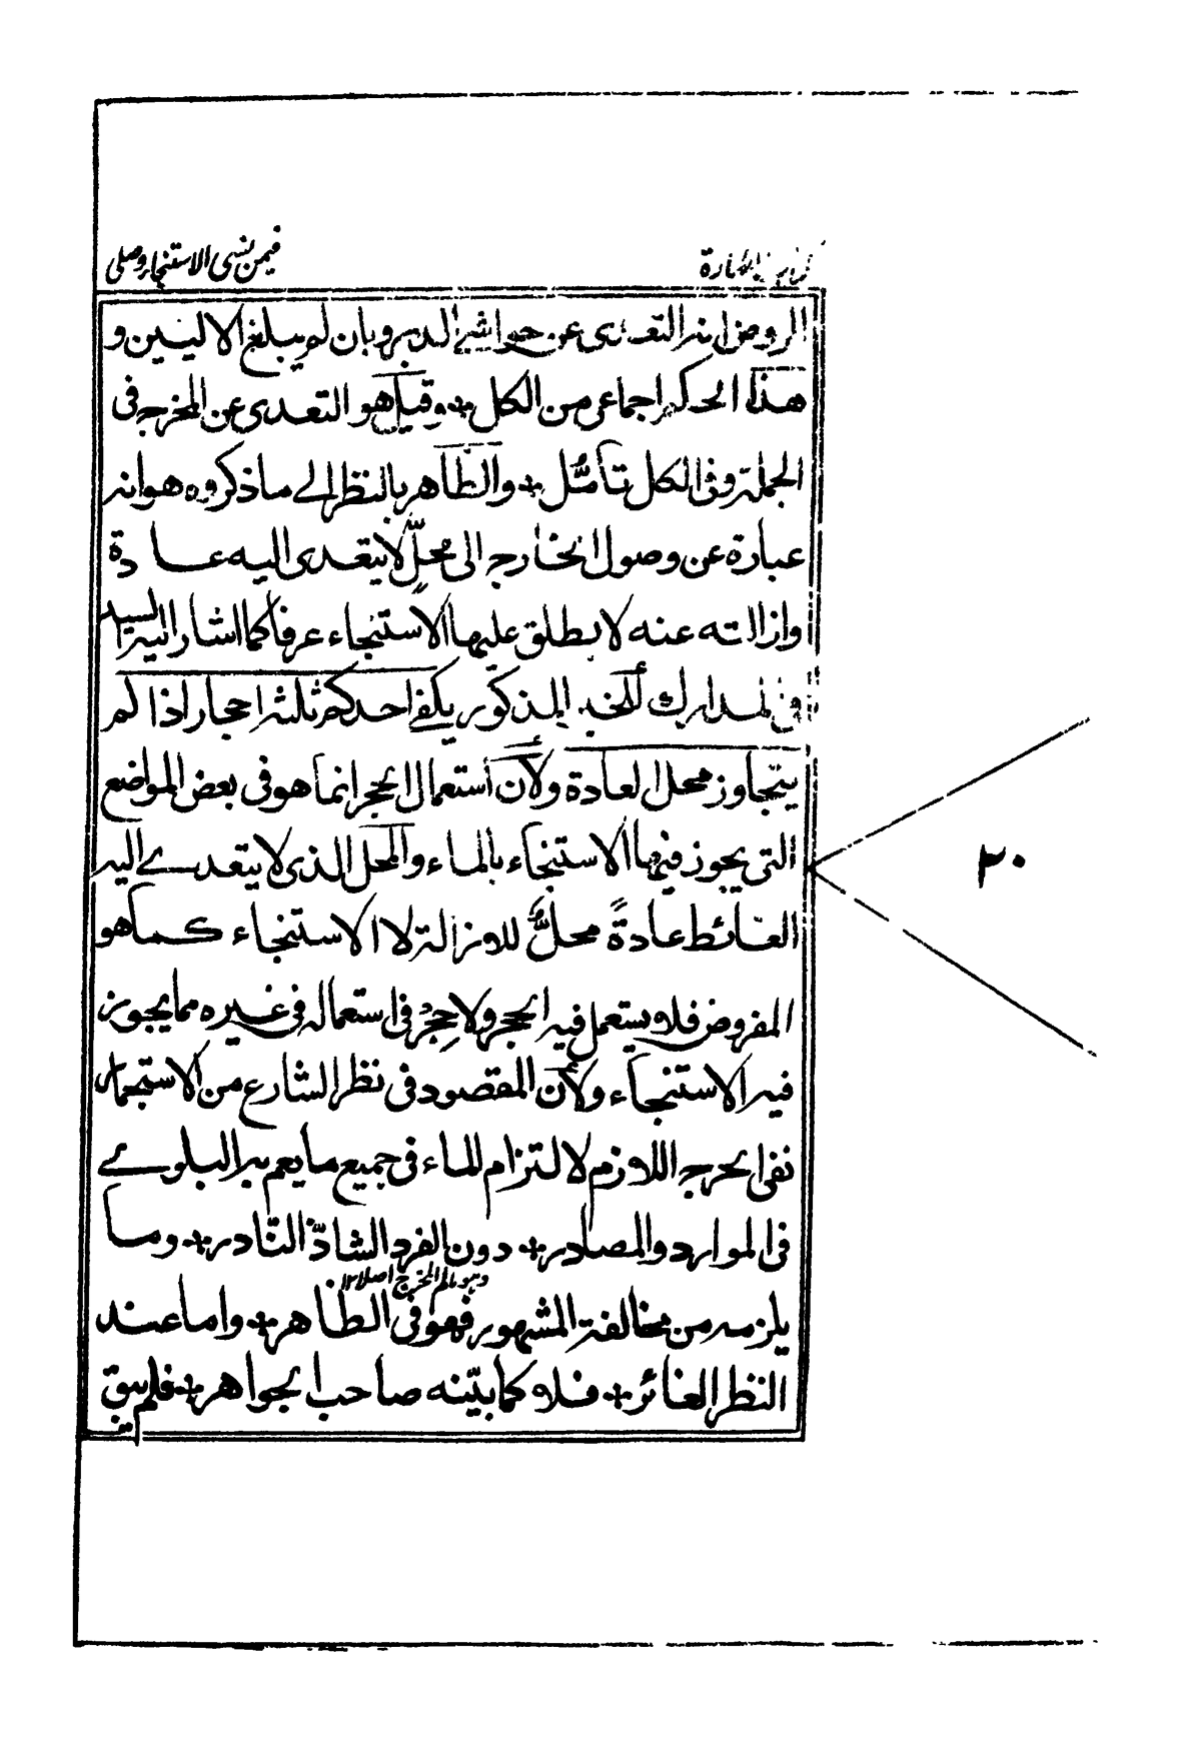 كتاب الطهارة
فيمن نسى الاستنجاء وصلى
الروض انه التعدى عن حواشى الدبر وبان لم يبلغ الاليين و
هذا الحكم اجماعى من الكل + وقيل هو التعدى عن المخرج فى
الجملة وفى الكل تأمّل + والظاهر بالنظر الى ما ذكروه هو انه
عبارة عن وصول الخارج الى محلّ لا يتعدى اليه عادة
وازالته عنه لا يطلق عليها الاستنجاء عرفا كما اشار اليه السيد
فى المدارك للخبر المذكور يكفى احدكم ثلثة احجار اذا لم
يتجاوز محل العادة ولأن استعمال الحجر انما هو فى بعض المواضع
التى يجوز فيها الاستنجاء بالماء والمحل الذى لا يتعدى اليه
الغائط عادةً محلٌّ للازالة لا الاستنجاء كما هو
المفروض فلا يستعمل فيه الحجر ولا حِجْر فى استعماله فى غيره مما يجوز
فيه الاستنجاء ولأن المقصود فى نظر الشارع من الاستجمار
نفى الحرج اللازم لالتزام الماء فى جميع ما يعم به البلوى
فى الموارد والمصادر + دون الفرد الشاذّ النّادر + وما
يلزمه من مخالفة المشهور فهو فى الظاهر + واما عند
النظر الغائر + فلا كما بيّنه صاحب الجواهر + فلم يبق
٣٠